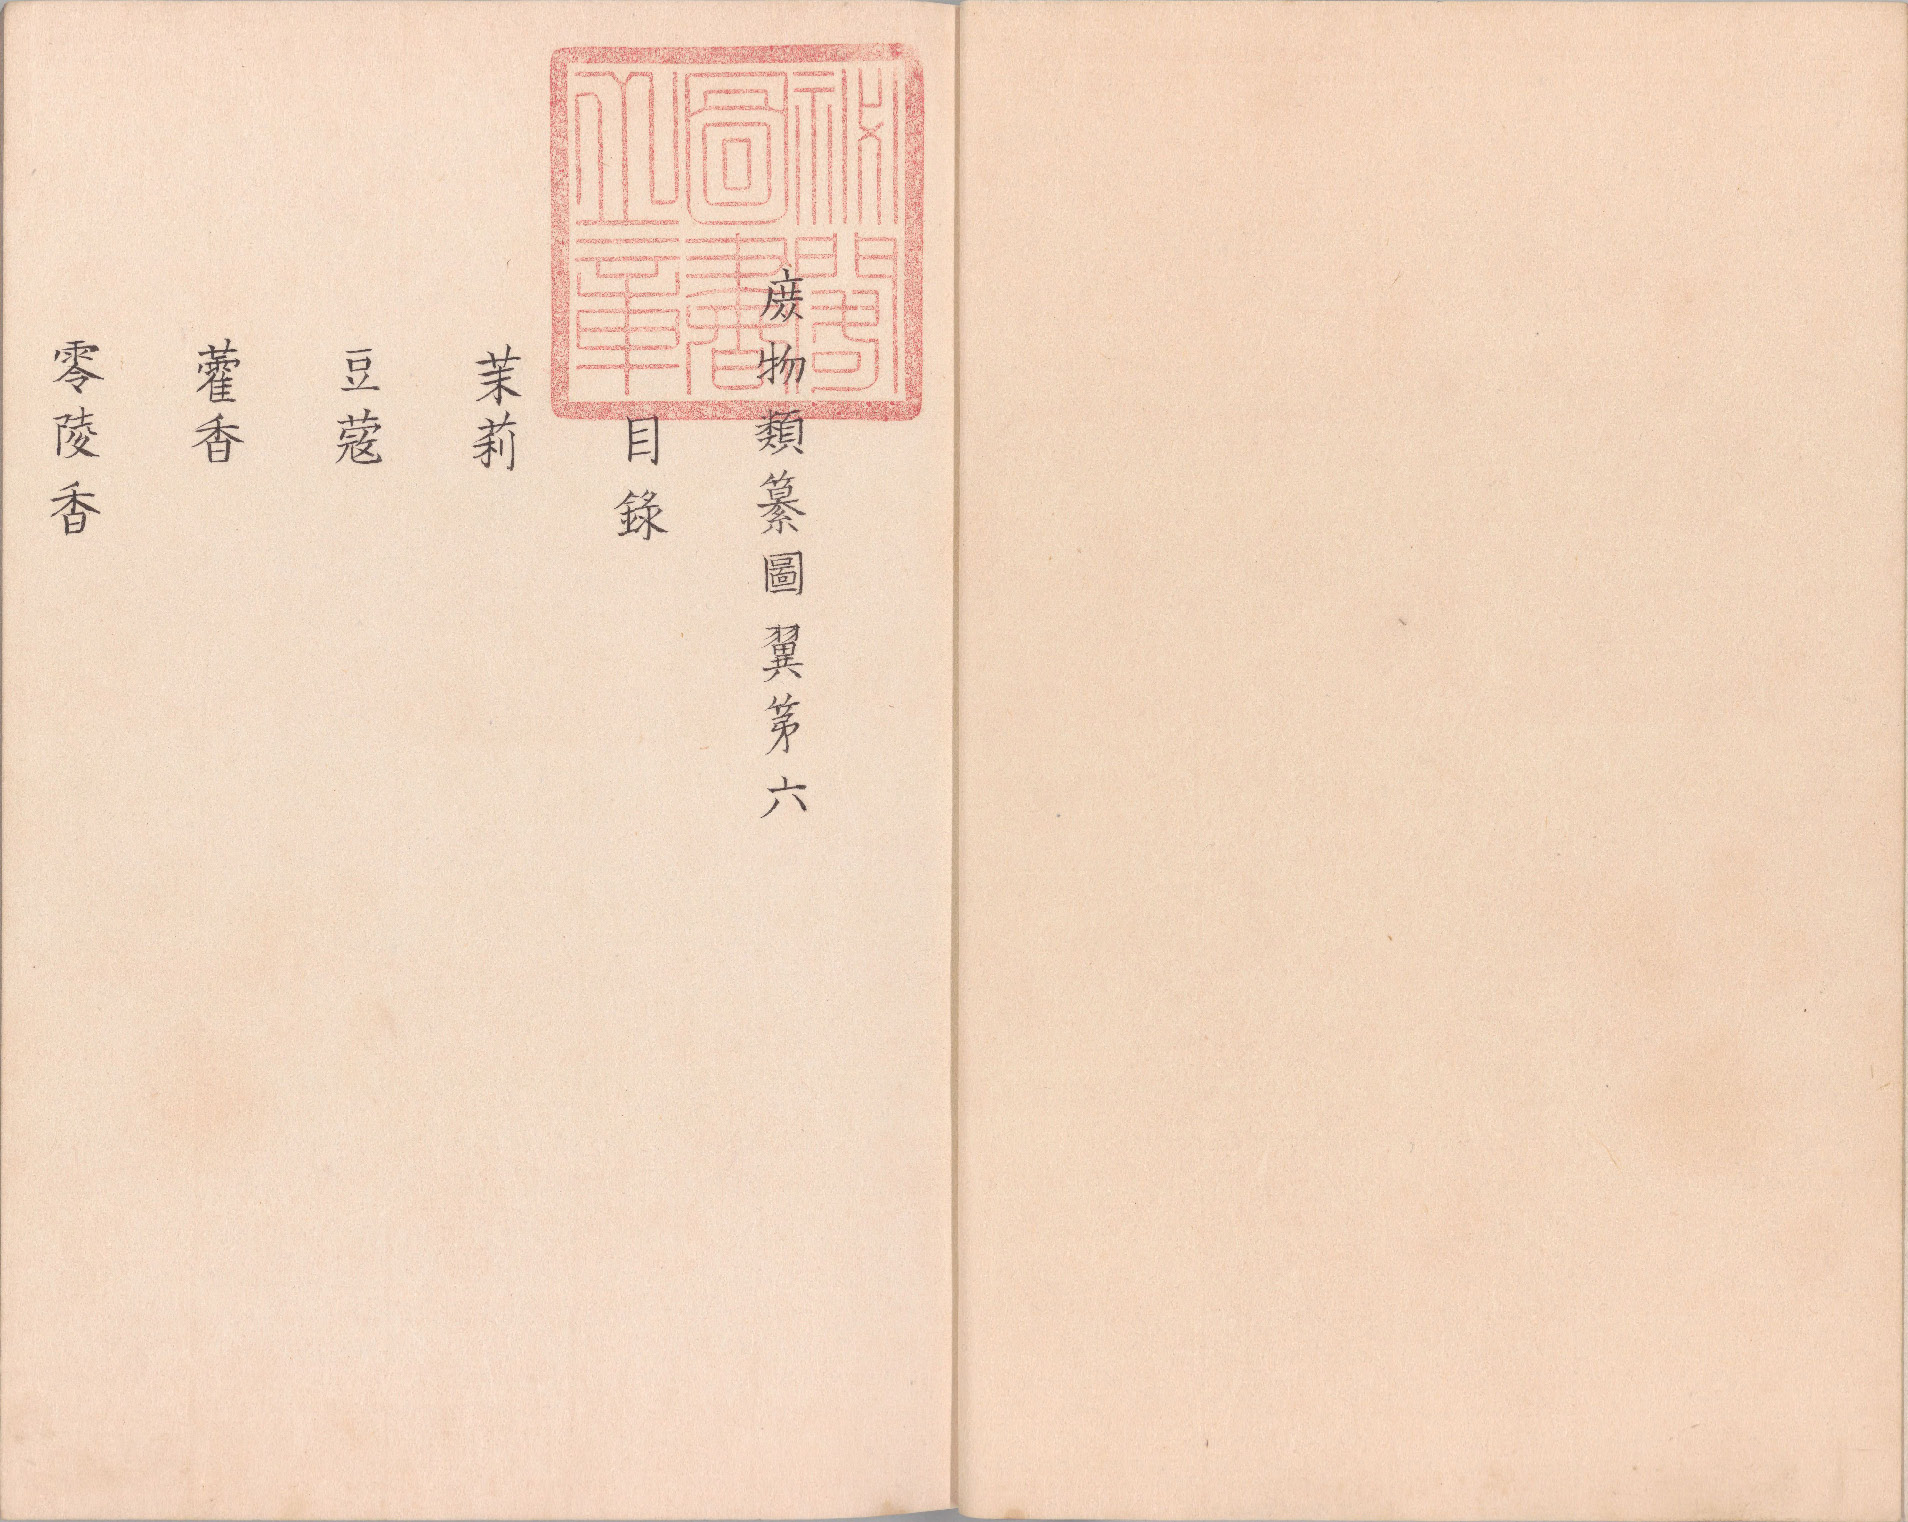 庻物類纂圖翼第六
目錄
茉莉
豆蔻
藿香
零陵香
秘閣
圖書
之章